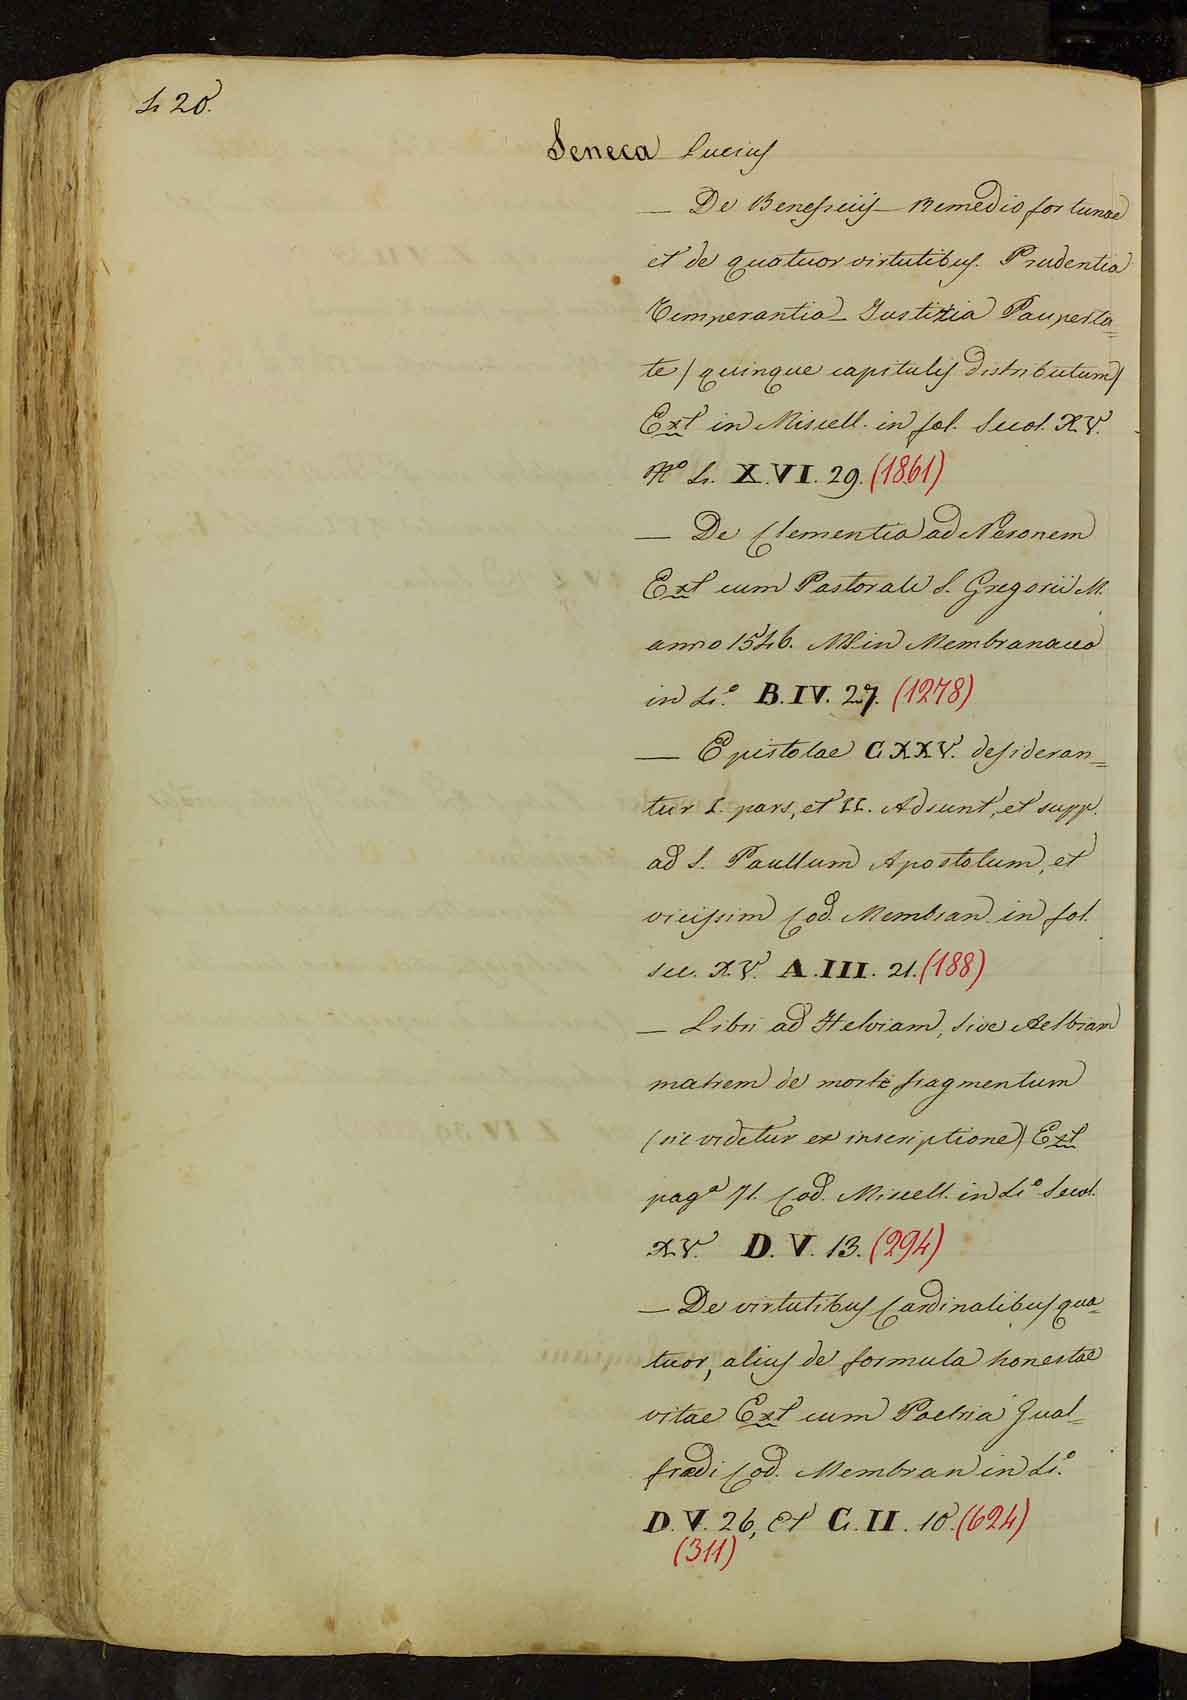 420.
Seneca Lucius
— De Beneficiis — Remedio fortunae
et de quatuor virtutibus. Prudentia
Temperantia — Justitia Pauperta=
te / quinque capitulis distributum /
Ext in Miscell. in fol. Secol. XV.
N.º 4. X.VI. 29. (1861)
— De Clementia ad Neronem
Ext cum Pastorali S. Gregorii M.
anno 1546. MS in Membranaceo
in 4.º B. IV. 27. (1278)
— Epistolae CXXV. desideran=
tur I. pars, et II. Adsunt, et supp.
ad S. Paullum Apostolum, et
vicissim Cod. Membran in fol.
sec. XV. A. III. 21. (188)
— Libri ad Helviam, sive Aelbiam
matrem de morte fragmentum
(sic videtur ex inscriptione) Ext
pagª 71. Cod. Miscell. in 4.º Secol.
XV. D. V. 13. (294)
— De virtutibus Cardinalibus qua=
tuor, alius de formula honestae
vitae Ext cum Poetria Gual=
fredi Cod. Membran in 4.º
D. V. 26, et G. II. 10. (624)
(311)